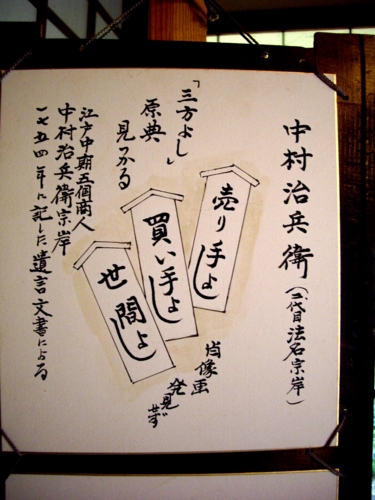 中村治兵衛(二代目法名宗岸)
売り手よし
買い手よし
世間よし
肖像画
発見せず
「三方よし」
原典
見つかる
江戸中期五個商人
中村治兵衛宗岸
一七五四年に記した遺言文書による